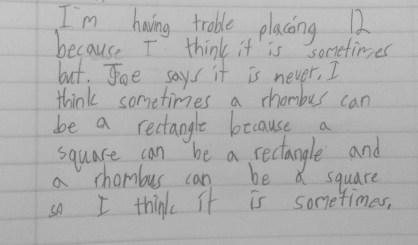 I'm having troble placing 12
because I think it is sometimes
but. Joe says it is never. I
think sometimes a rhombus can
be a rectangle because a
square can be a rectangle and
a rhombus can be a square
so I think it is sometimes.